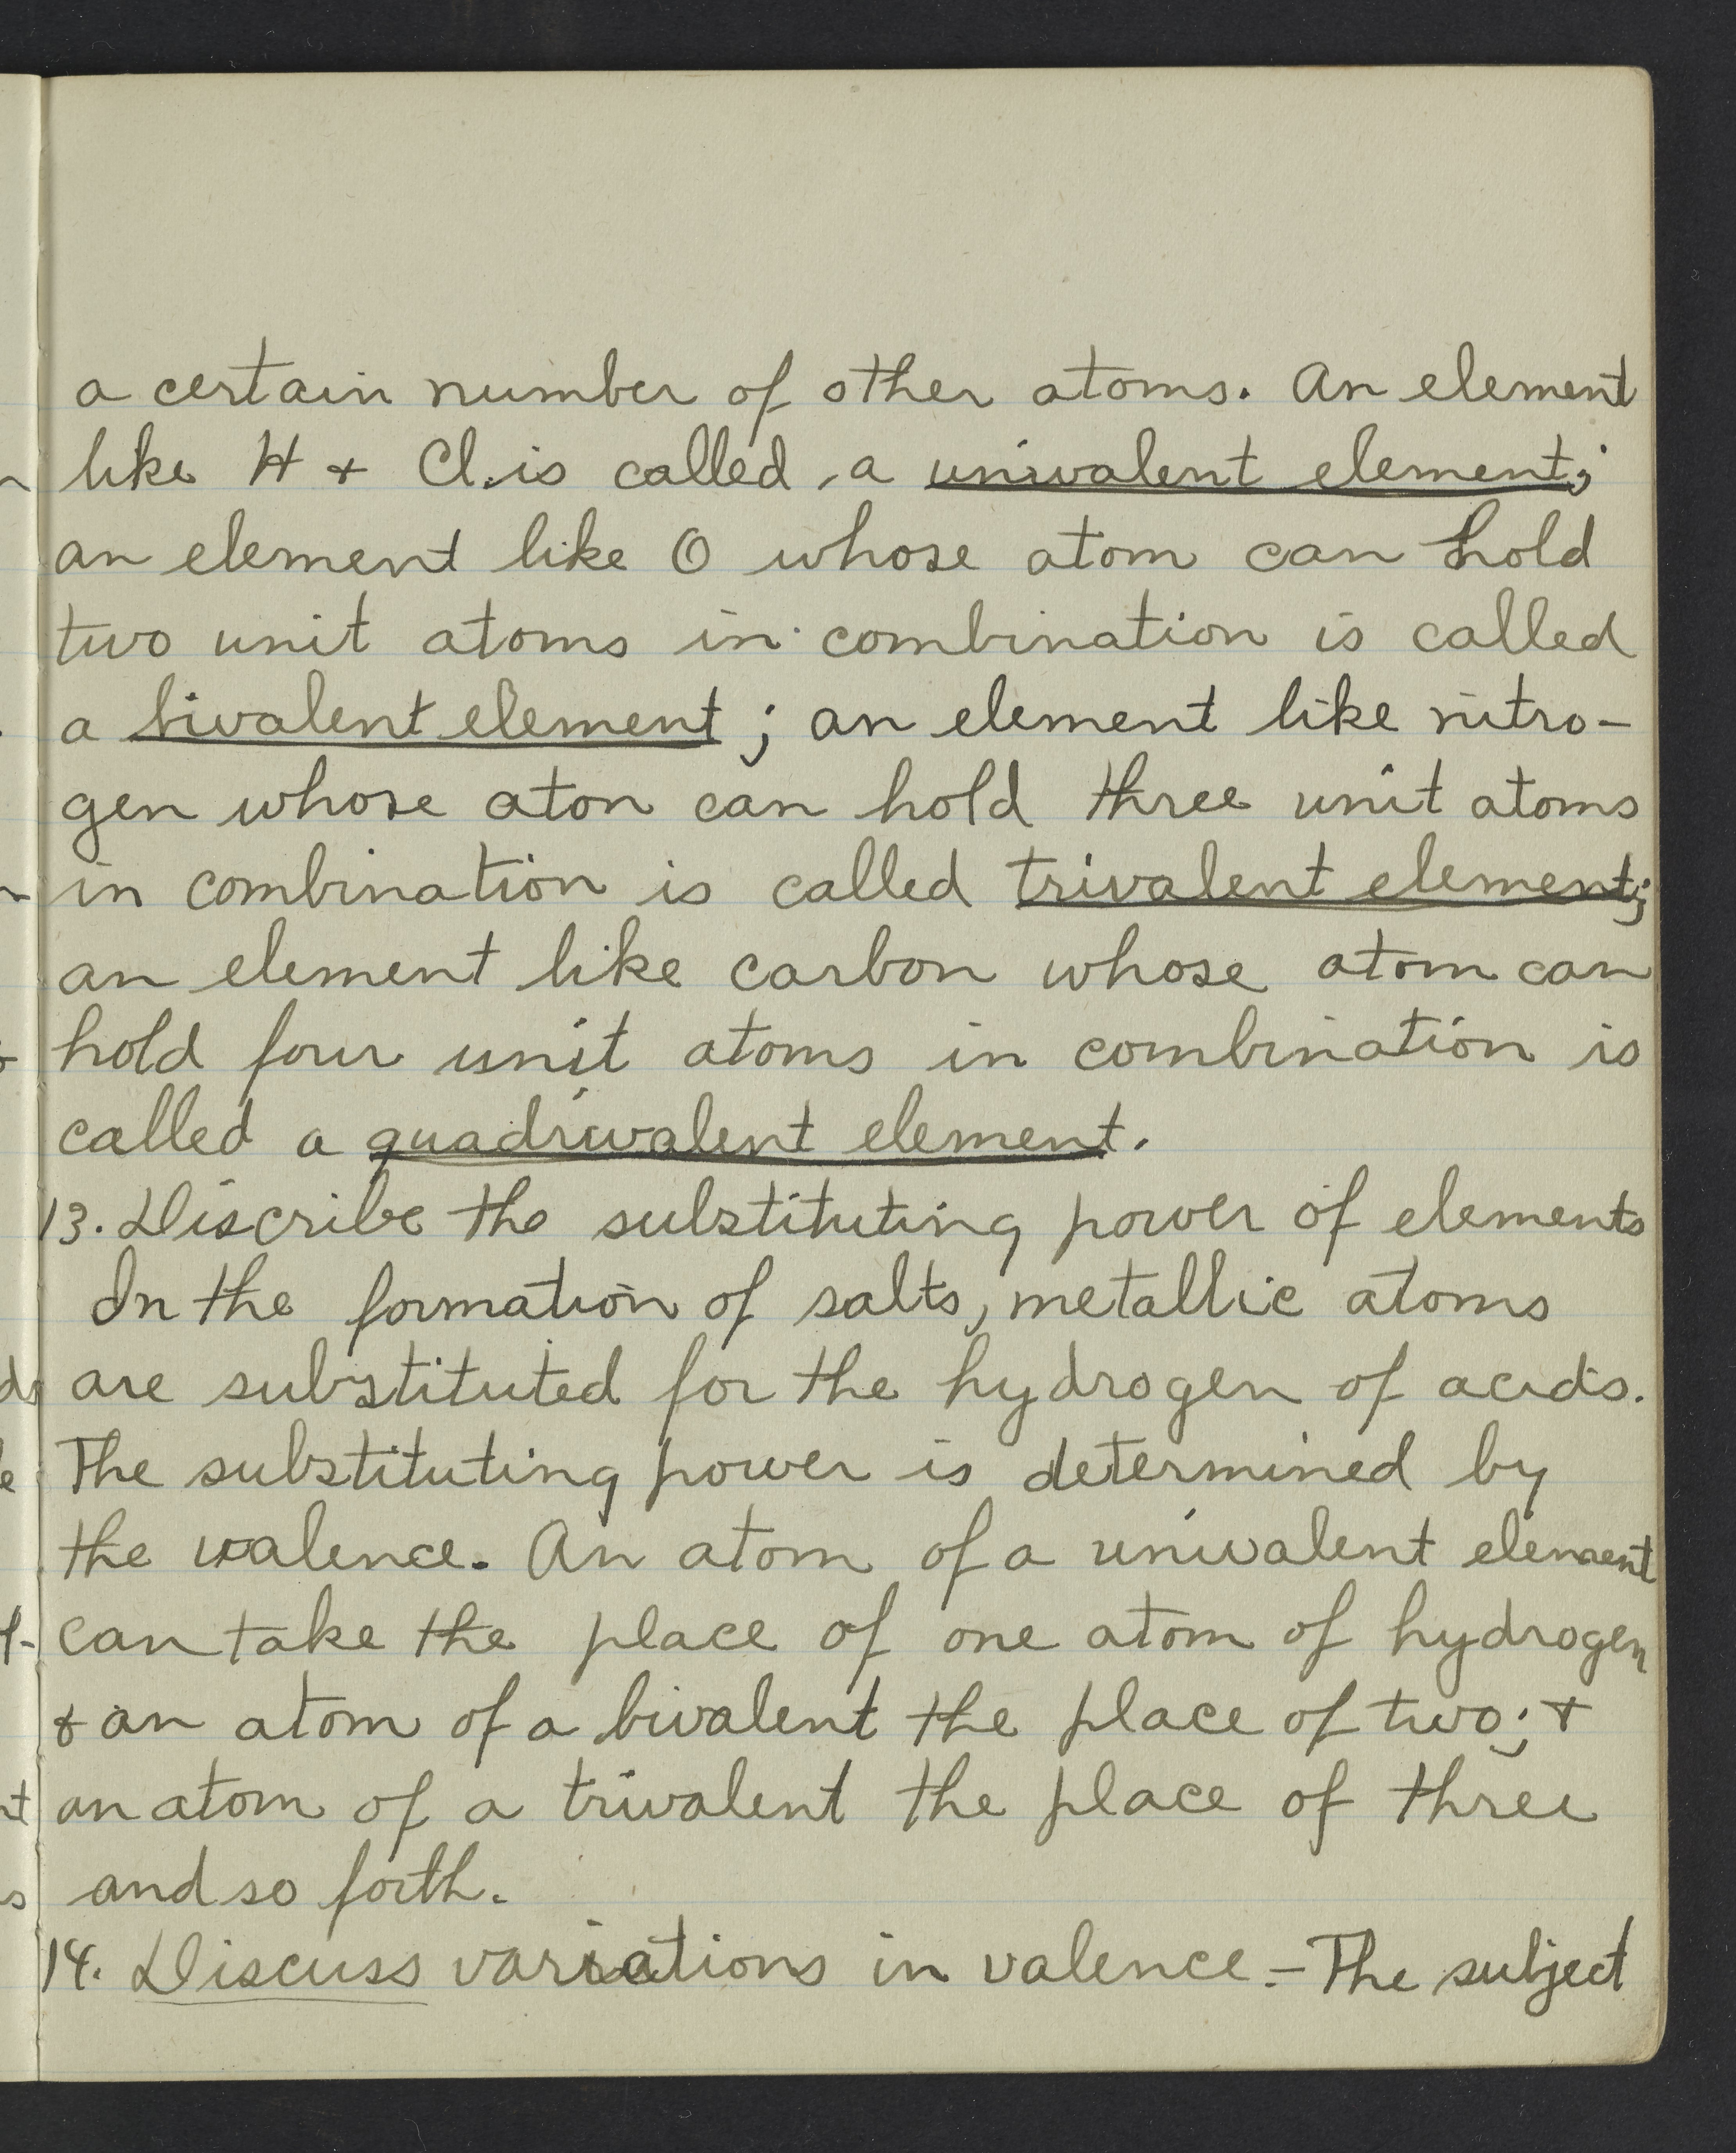 a certain number of other atoms. An element
like H + Cl. is called a univalent element;
an element like O whose atom can hold
two unit atoms in combination is called
a bivalent element; an element like nitro-
gen whose aton can hold three unit atoms
in combination is called trivalent element;
an element like carbon whose atom can
hold four unit atoms in combination is
called a quadrivalent element.
13. Discribe the substituting power of elements
In the formation of salts, metallic atoms
are substituted for the hydrogen of acids.
The substituting power is determined by
the valence. An atom of a univalent element
can take the place of one atom of hydrogen
& an atom of a bivalent the place of two; +
an atom of a trivalent the place of three
and so forth.
14. Discuss variations in valence.- The subject